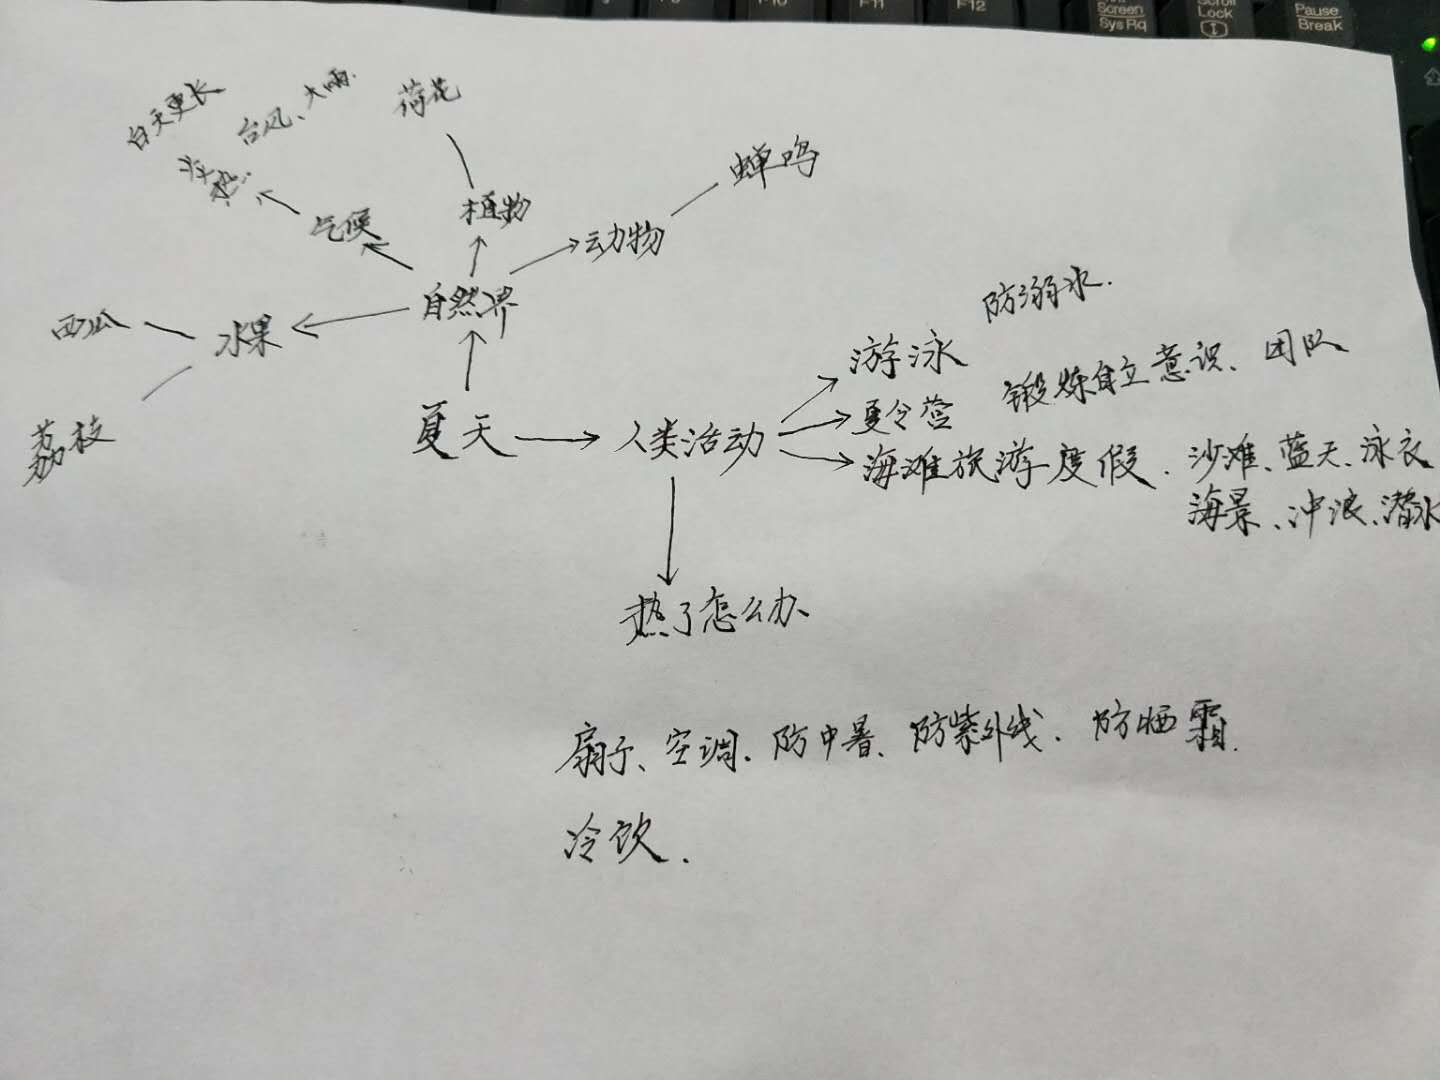 F10
F11
F12
Screen
Sys Rq
Scroll
Lock
Pause
Break
白天更长
台风、大雨.
荷花
炎热
气候
植物
动物
蝉鸣
自然界
西瓜
水果
荔枝
夏天
人类活动
游泳
防溺水.
夏令营
锻炼自立意识、团队
海滩旅游度假.
沙滩、蓝天、泳衣
海景、冲浪、潜水
热了怎么办
扇子、空调.防中暑、防紫外线.防晒霜.
冷饮.